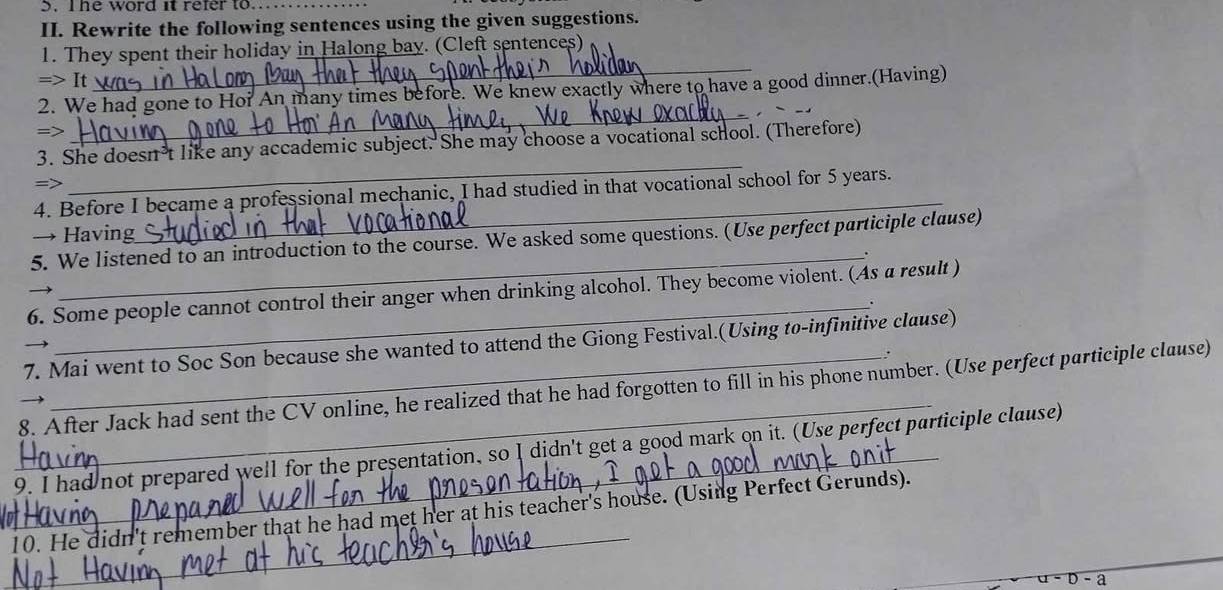 5. The word it refer to..................
II. Rewrite the following sentences using the given suggestions.
1. They spent their holiday in Halong bay. (Cleft sentences)
=> It was in Halong Bay that they spent their holiday
2. We had gone to Hoi An many times before. We knew exactly where to have a good dinner.(Having)
=> Having gone to Hoi An Many time, We Knew exactly
3. She doesn't like any accademic subject. She may choose a vocational school. (Therefore)
=>
4. Before I became a professional mechanic, I had studied in that vocational school for 5 years.
→ Having studied in that vocational
5. We listened to an introduction to the course. We asked some questions. (Use perfect participle clause)
→ .
6. Some people cannot control their anger when drinking alcohol. They become violent. (As a result )
→ .
7. Mai went to Soc Son because she wanted to attend the Giong Festival.(Using to-infinitive clause)
→ .
8. After Jack had sent the CV online, he realized that he had forgotten to fill in his phone number. (Use perfect participle clause)
Having
9. I had not prepared well for the presentation, so I didn't get a good mark on it. (Use perfect participle clause)
Not Having prepared well for the presentation, I get a good mark on it
10. He didn't remember that he had met her at his teacher's house. (Using Perfect Gerunds).
Not Having met at his teacher's house
- D - a